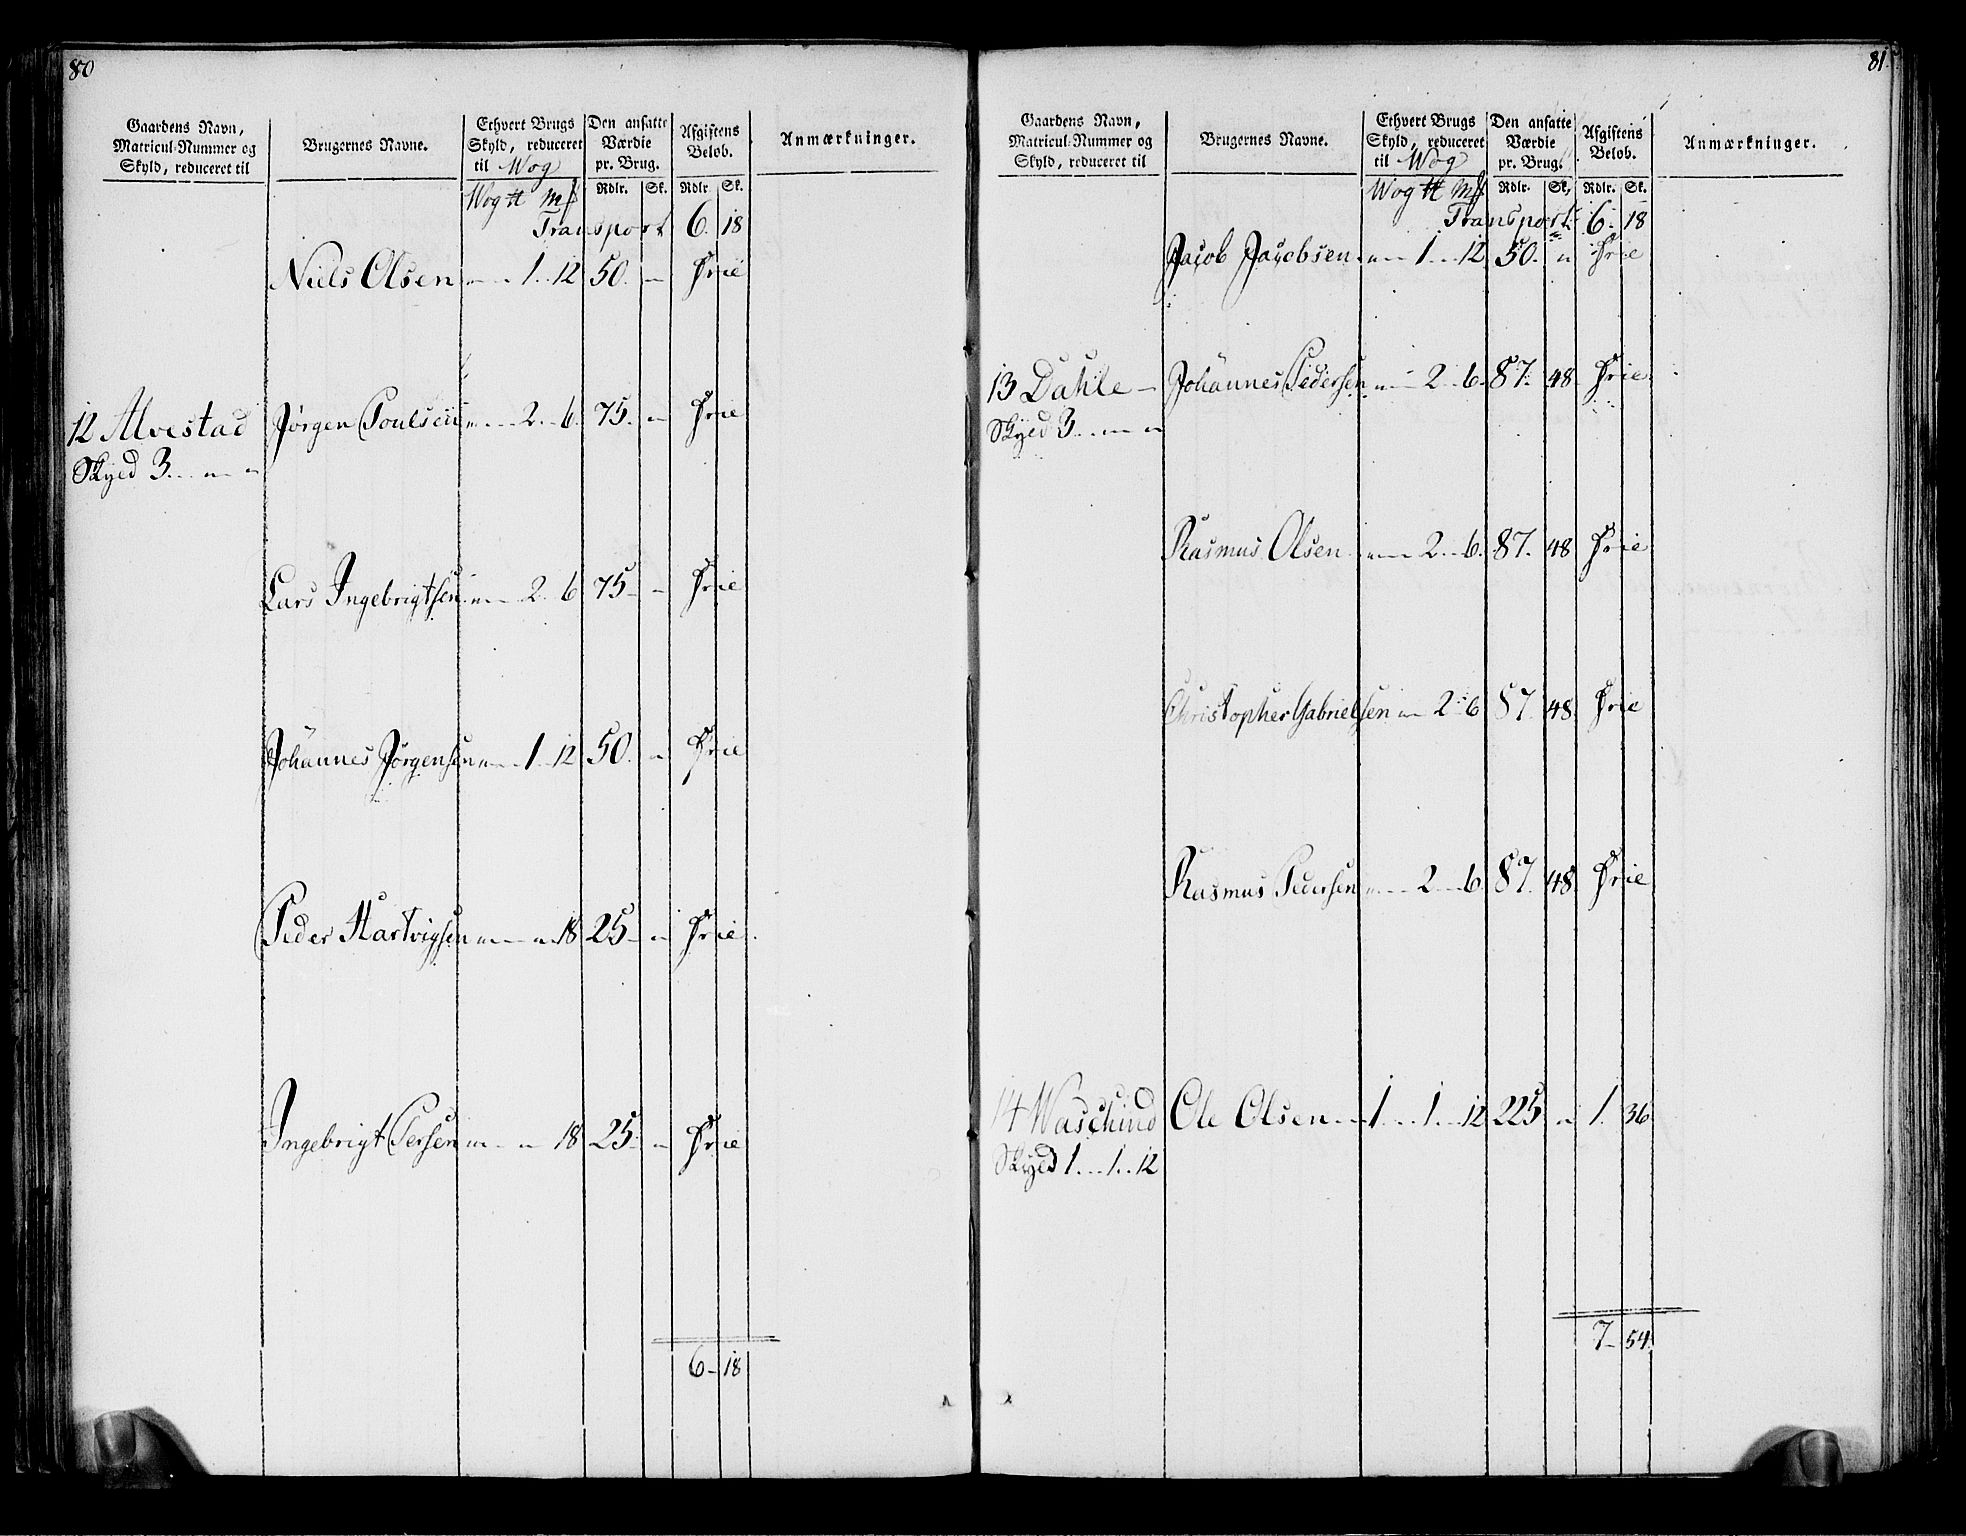 80
Gaardens Navn, Matricul-Nummer og Skyld, reduceret til
Brugernes Navne.
Ethvert Brugs Skyld, reduceret til Wog
Den ansatte Værdie pr. Brug.
Afgiftens Beløb.
Anmærkninger.
Wog ℔ Mk Rdlr. Sk. Rdlr. Sk.
Transport 6. 18
Niels Olsen „ 1 12 50. „ Frie
12 Alvestad Jørgen Poulsen „ 2 6. 75. „ Frie
Skyld 3 „ „
Lars Ingebrigtsen „ 2 6 75 „ Frie
Johannes Jørgensen „ 1 12 50. „ Frie
Peder Hartvigsen „ „ 18 25 „ Frie
Ingebrigt Persen „ „ 18 25 „ Frie
6 18
81
Gaardens Navn, Matricul-Nummer og Skyld, reduceret til
Brugernes Navne.
Ethvert Brugs Skyld, reduceret til Wog
Den ansatte Værdie pr. Brug.
Afgiftens Beløb.
Anmærkninger.
Wog ℔ Mk Rdlr. Sk. Rdlr. Sk.
Transport 6 18
Jacob Jacobsen „ 1 12 50. „ Frie
13 Dahle Johannes Pedersen „ 2 6. 87. 48 Frie
Skyld 3 „ „
Rasmus Olsen „ 2 6. 87. 48 Frie
Christopher Gabrielsen „ 2 6 87. 48 Frie
Rasmus Pedersen „ 2 6 87. 48 Frie
14 Ole Olsen 1 1 12 225 „ 1. 36
Skyld 1 1 12
7 54